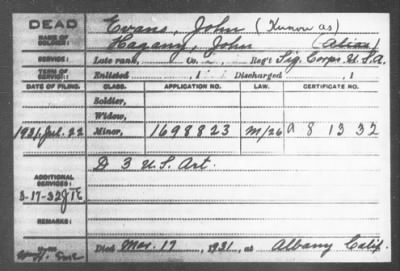 DEAD
Evans, John (Known as)
NAME OF SOLDIER:
Hagany, John (Alias)
SERVICE:
Late rank, Co. Reg't Sig. Corps U.S.A.
TERM OF SERVICE:
Enlisted , 1 Discharged , 1
DATE OF FILING. CLASS. APPLICATION NO. LAW. CERTIFICATE NO.
Soldier,
Widow,
1931, Jul. 22 Minor, 1698823 M/26 A 8 13 32
D 3 U.S. Art.
ADDITIONAL SERVICES:
3-17-32
REMARKS:
Died Mar. 17, 1931, at Albany Calif.